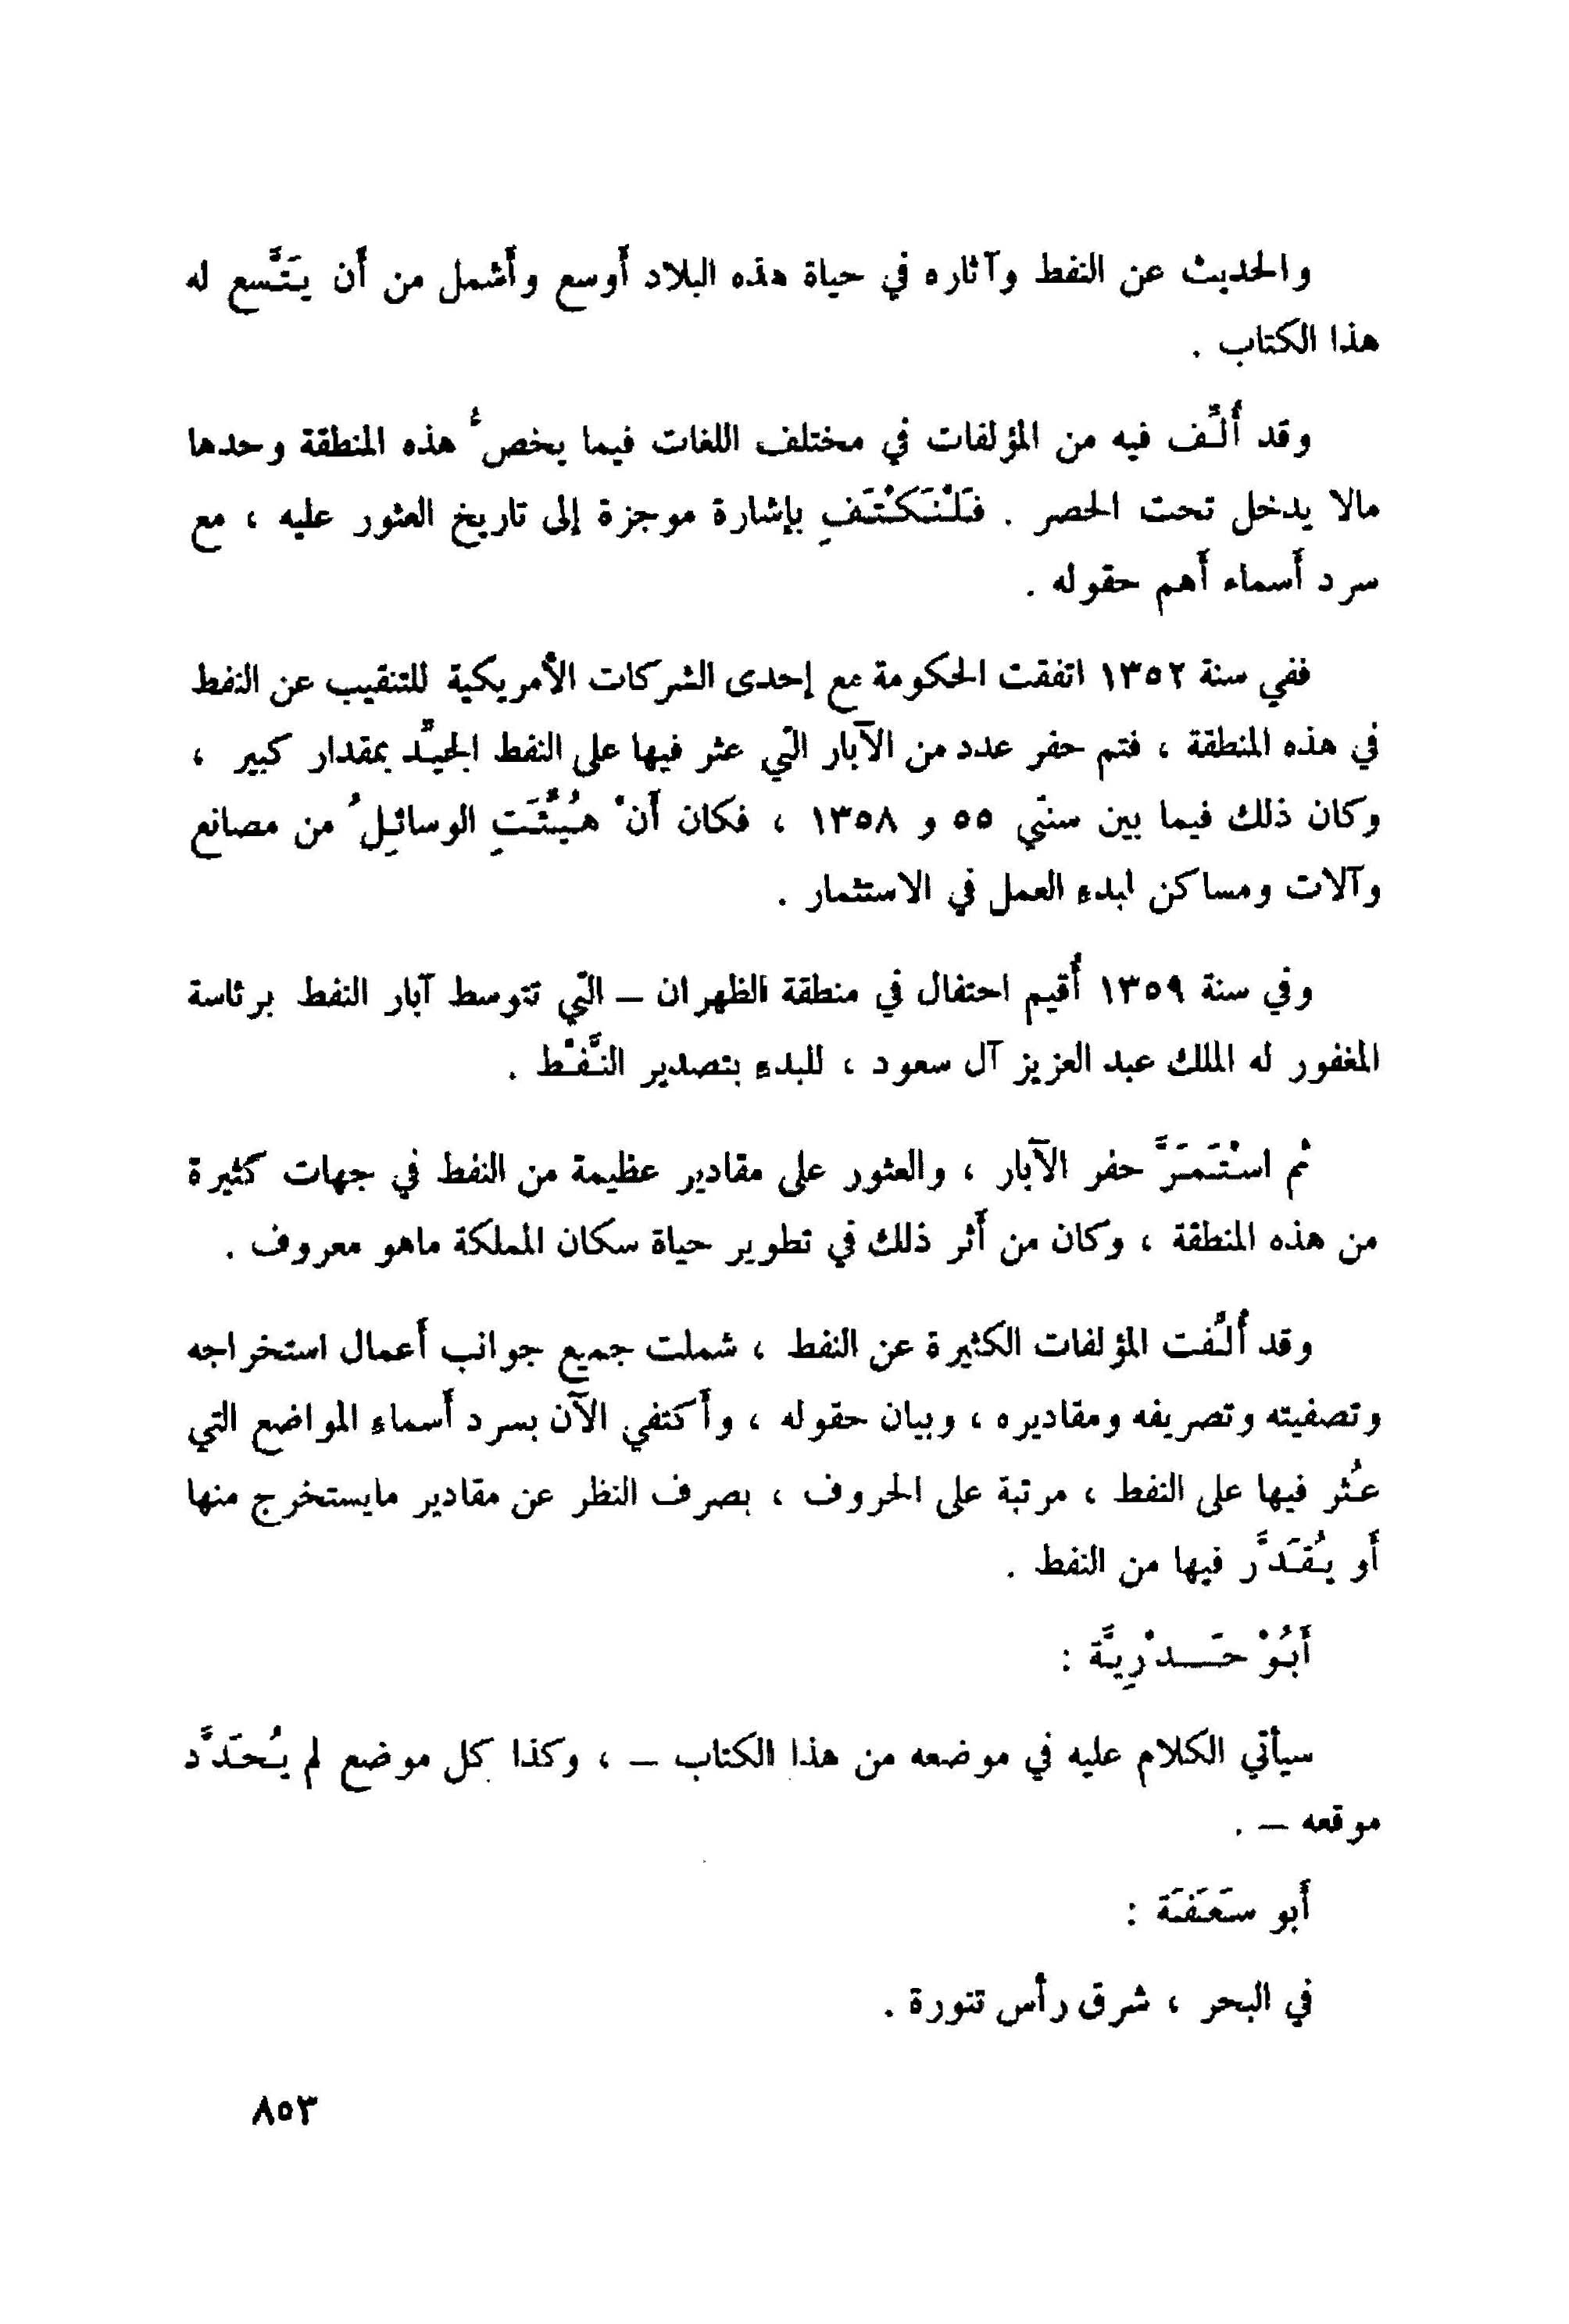 والحديث عن النفط وآثاره في حياة هذه البلاد أوسع وأشمل من أن يَتَّسع له
هذا الكتاب .
وقد أُلِّف فيه من المؤلفات في مختلف اللغات فيما يخصُّ هذه المنطقة وحدها
مالا يدخل تحت الحصر . فَلْنَكْتَفِ بإشارة موجزة إلى تاريخ العثور عليه ، مع
سرد أسماء أهم حقوله .
ففي سنة ١٣٥٢ اتفقت الحكومة مع إحدى الشركات الأمريكية للتنقيب عن النفط
في هذه المنطقة ، فتم حفر عدد من الآبار التي عثر فيها على النفط الجيِّد بمقدار كبير ،
وكان ذلك فيما بين سنتي ٥٥ و ١٣٥٨ ، فكان أنْ هُيِّئَتِ الوسائِلُ من مصانع
وآلات ومساكن لبدء العمل في الاستثمار .
وفي سنة ١٣٥٩ أُقيم احتفال في منطقة الظهران – التي تتوسط آبار النفط برئاسة
المغفور له الملك عبد العزيز آل سعود ، للبدء بتصدير النَّفْط .
ثم اسْتَمَرَّ حفر الآبار ، والعثور على مقادير عظيمة من النفط في جهات كثيرة
من هذه المنطقة ، وكان من أثر ذلك في تطوير حياة سكان المملكة ماهو معروف .
وقد أُلِّفت المؤلفات الكثيرة عن النفط ، شملت جميع جوانب أعمال استخراجه
وتصفيته وتصريفه ومقاديره ، وبيان حقوله ، وأكتفي الآن بسرد أسماء المواضع التي
عُثر فيها على النفط ، مرتبة على الحروف ، بصرف النظر عن مقادير مايستخرج منها
أو يُقَدَّر فيها من النفط .
أَبُوْ حَـــدْرِيَّة :
سيأتي الكلام عليه في موضعه من هذا الكتاب – ، وكذا كل موضع لم يُحَدَّد
موقعه – .
أَبو سَعَفَة :
في البحر ، شرق رأس تنورة .
٨٥٣